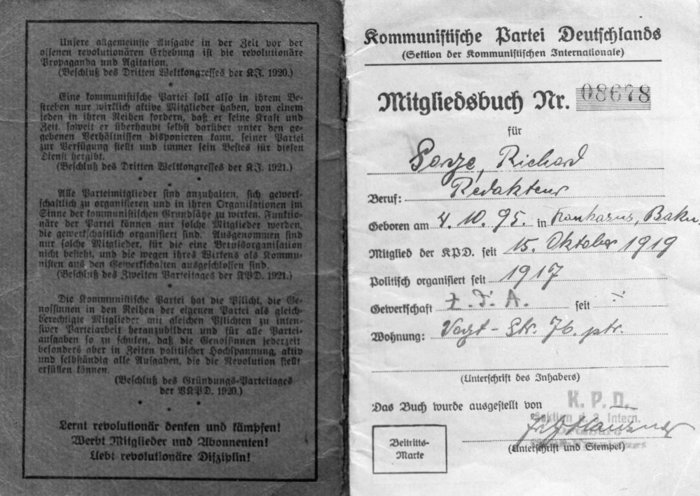 Unsere allgemeinste Aufgabe in der Zeit vor der
offenen revolutionären Erhebung ist die revolutionäre
Propaganda und Agitation.
(Beschluß des Dritten Weltkongresses der K.I. 1920.)
Eine kommunistische Partei soll also in ihrem Be-
streben nur wirklich aktive Mitglieder haben, von einem
jeden in ihren Reihen fordern, daß er seine Kraft und
Zeit, soweit er überhaupt selbst darüber unter den ge-
gebenen Verhältnissen disponieren kann, seiner Partei
zur Verfügung stellt und immer sein Bestes für diesen
Dienst hergibt.
(Beschluß des Dritten Weltkongresses der K.I. 1921.)
Alle Parteimitglieder sind anzuhalten, sich gewerk-
schaftlich zu organisieren und in ihren Organisationen im
Sinne der kommunistischen Grundsätze zu wirken. Funktio-
näre der Partei können nur solche Mitglieder werden,
die gewerkschaftlich organisiert sind. Ausgenommen sind
nur solche Mitglieder, für die eine Berufsorganisation
nicht besteht, und die wegen ihres Wirkens als Kommu-
nisten aus den Gewerkschaften ausgeschlossen sind.
(Beschluß des Zweiten Parteitages der K.P.D. 1921.)
Die Kommunistische Partei hat die Pflicht, die Ge-
nossinnen in den Reihen der eigenen Partei als gleich-
berechtigte Mitglieder mit gleichen Pflichten zu inten-
siver Parteiarbeit heranzubilden und für alle Partei-
aufgaben so zu schulen, daß die Genossinnen jederzeit
besonders aber in Zeiten politischer Hochspannung, aktiv
und selbständig alle Aufgaben, die die Revolution stellt
erfüllen können.
(Beschluß des Gründungs-Parteitages
der VKPD. 1920.)
Lernt revolutionär denken und kämpfen!
Werbt Mitglieder und Abonnenten!
Uebt revolutionäre Disziplin!
Kommunistische Partei Deutschlands
(Sektion der Kommunistischen Internationale)
Mitgliedsbuch Nr. 08678
für
Sorge, Richard
Beruf: Redakteur
Geboren am 4.10.95. in Kaukasus, Baku
Mitglied der KPD. seit 15. Oktober 1919
Politisch organisiert seit 1917
Gewerkschaft I.T.A. seit
Wohnung: Voigt-Str. 76. ptr.
(Unterschrift des Inhabers)
Das Buch wurde ausgestellt von K.P.D.
Sektion d. 3. Intern.
Beitritts-
Marke
(Unterschrift und Stempel)